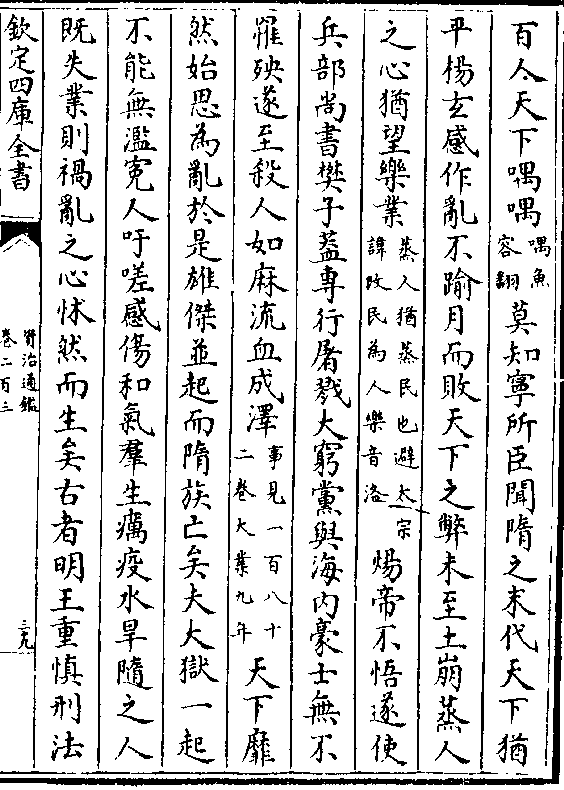 百人天下喁喁喁魚容翻莫知寧所臣聞隋之末代天下猶
平楊玄感作亂不踰月而敗天下之弊未至土崩蒸人
之心猶望樂業蒸人猶蒸民也避太宗諱改民為人樂音洛煬帝不悟遂使
兵部尚書樊子葢專行屠戮大窮黨與海内豪士無不
罹殃遂至殺人如麻流血成澤事見一百八十二卷大業九年天下靡
然始思為亂於是雄傑並起而隋族亡矣夫大獄一起
不能無濫寃人吁嗟感傷和氣羣生癘疫水旱隨之人
既失業則禍亂之心怵然而生矣古者明王重慎刑法
欽定四庫全書
資治通鑑
卷二百三
三九